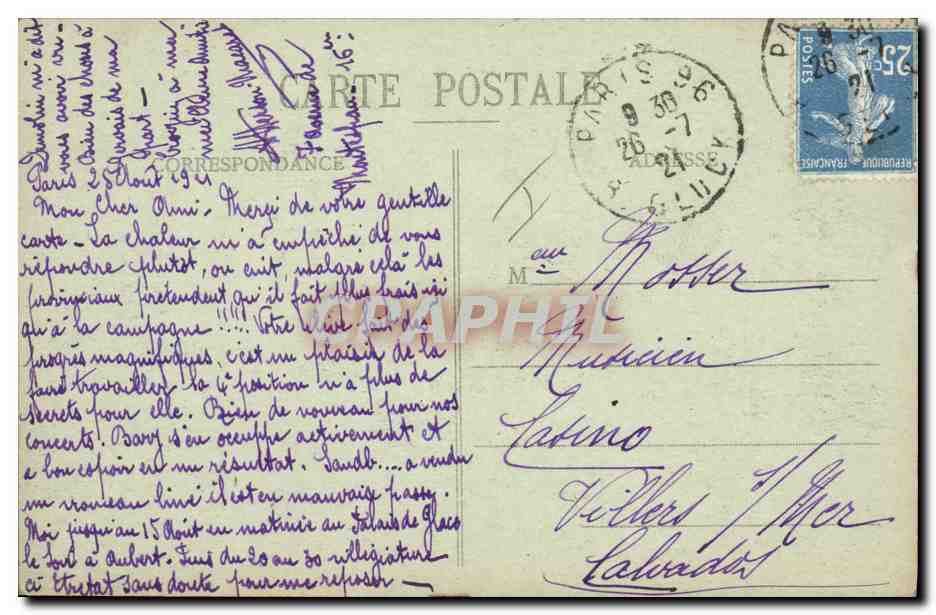 CARTE POSTALE
CORRESPONDANCE
ADRESSE
Paris 25 Août 1921
Mon Cher Ami - Merci de votre gentille
carte - La chaleur m'a empêché de vous
répondre plutôt, on cuit, malgré celà les
provinciaux prétendent qu'il fait plus frais ici
qu'à la campagne !!!!! Votre élève fait des
progrès magnifiques, c'est un plaisir de la
faire travailler la 4e position n'a plus de
secrets pour elle. Rien de nouveau pour nos
concerts. Bary s'en occuppe activement et
a bon espoir en un résultat. Sandb.... a vendu
un nouveau livre il est en mauvaise passe.
Moi jusqu'au 15 Août en matinée au Palais de Glace
le soir à Aubert. Puis du 20 au 30 villégiature
à Etretat sans doute pour me reposer -
Demolin m'a dit
vous avoir vu
Rien des choses à
de ma
part -
à ma
16
M
au Mosser
Musicien
Casino
Villers s/ Mer
Calvados
PARIS 96
9 30
26 -7
21
R. GLUCK
PARIS
9 30
26 -7
21
25c
POSTES
REPUBLIQUE FRANÇAISE
CPAPHIL